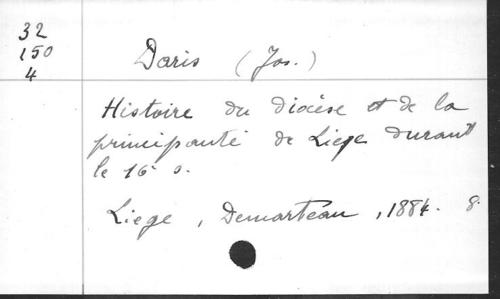 32
150
4
Daris (Jos.)
Histoire du diocèse et de la
principauté de Liege durant
le 16 s.
Liege, Demarteau, 1884. 8.